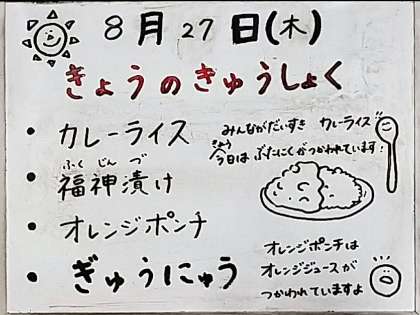 8月27日(木)
きょうのきゅうしょく
・カレーライス
ふくじんづ
・福神漬け
・オレンジポンチ
・ぎゅうにゅう
みんながだいすき カレーライス
きょう
今日は ぶたにくがつかわれています!
オレンジポンチは
オレンジジュースが
つかわれていますよ